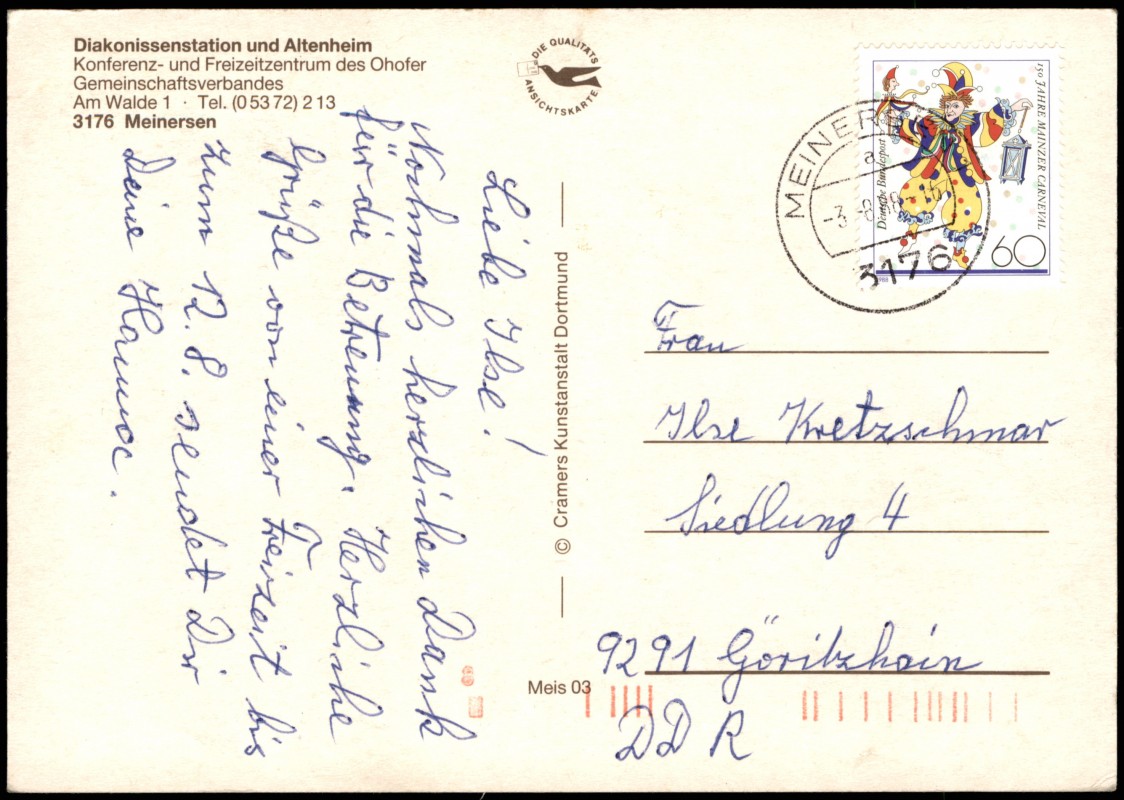 Diakonissenstation und Altenheim
Konferenz- und Freizeitzentrum des Ohofer
Gemeinschaftsverbandes
Am Walde 1 · Tel. (0 53 72) 2 13
3176 Meinersen
DIE QUALITÄTS
ANSICHTSKARTE
150 JAHRE MAINZER CARNEVAL
Deutsche Bundespost
60
3176
Liebe Ilse!
Nochmals herzlichen Dank
für die Betreuung. Herzliche
Grüße von einer Freizeit bis
zum 12. 8. sendet Dir
Deine
© Cramers Kunstanstalt Dortmund
Meis 03
Frau
Ilse Kretzschmar
Siedlung 4
9291 Göritzhain
DDR